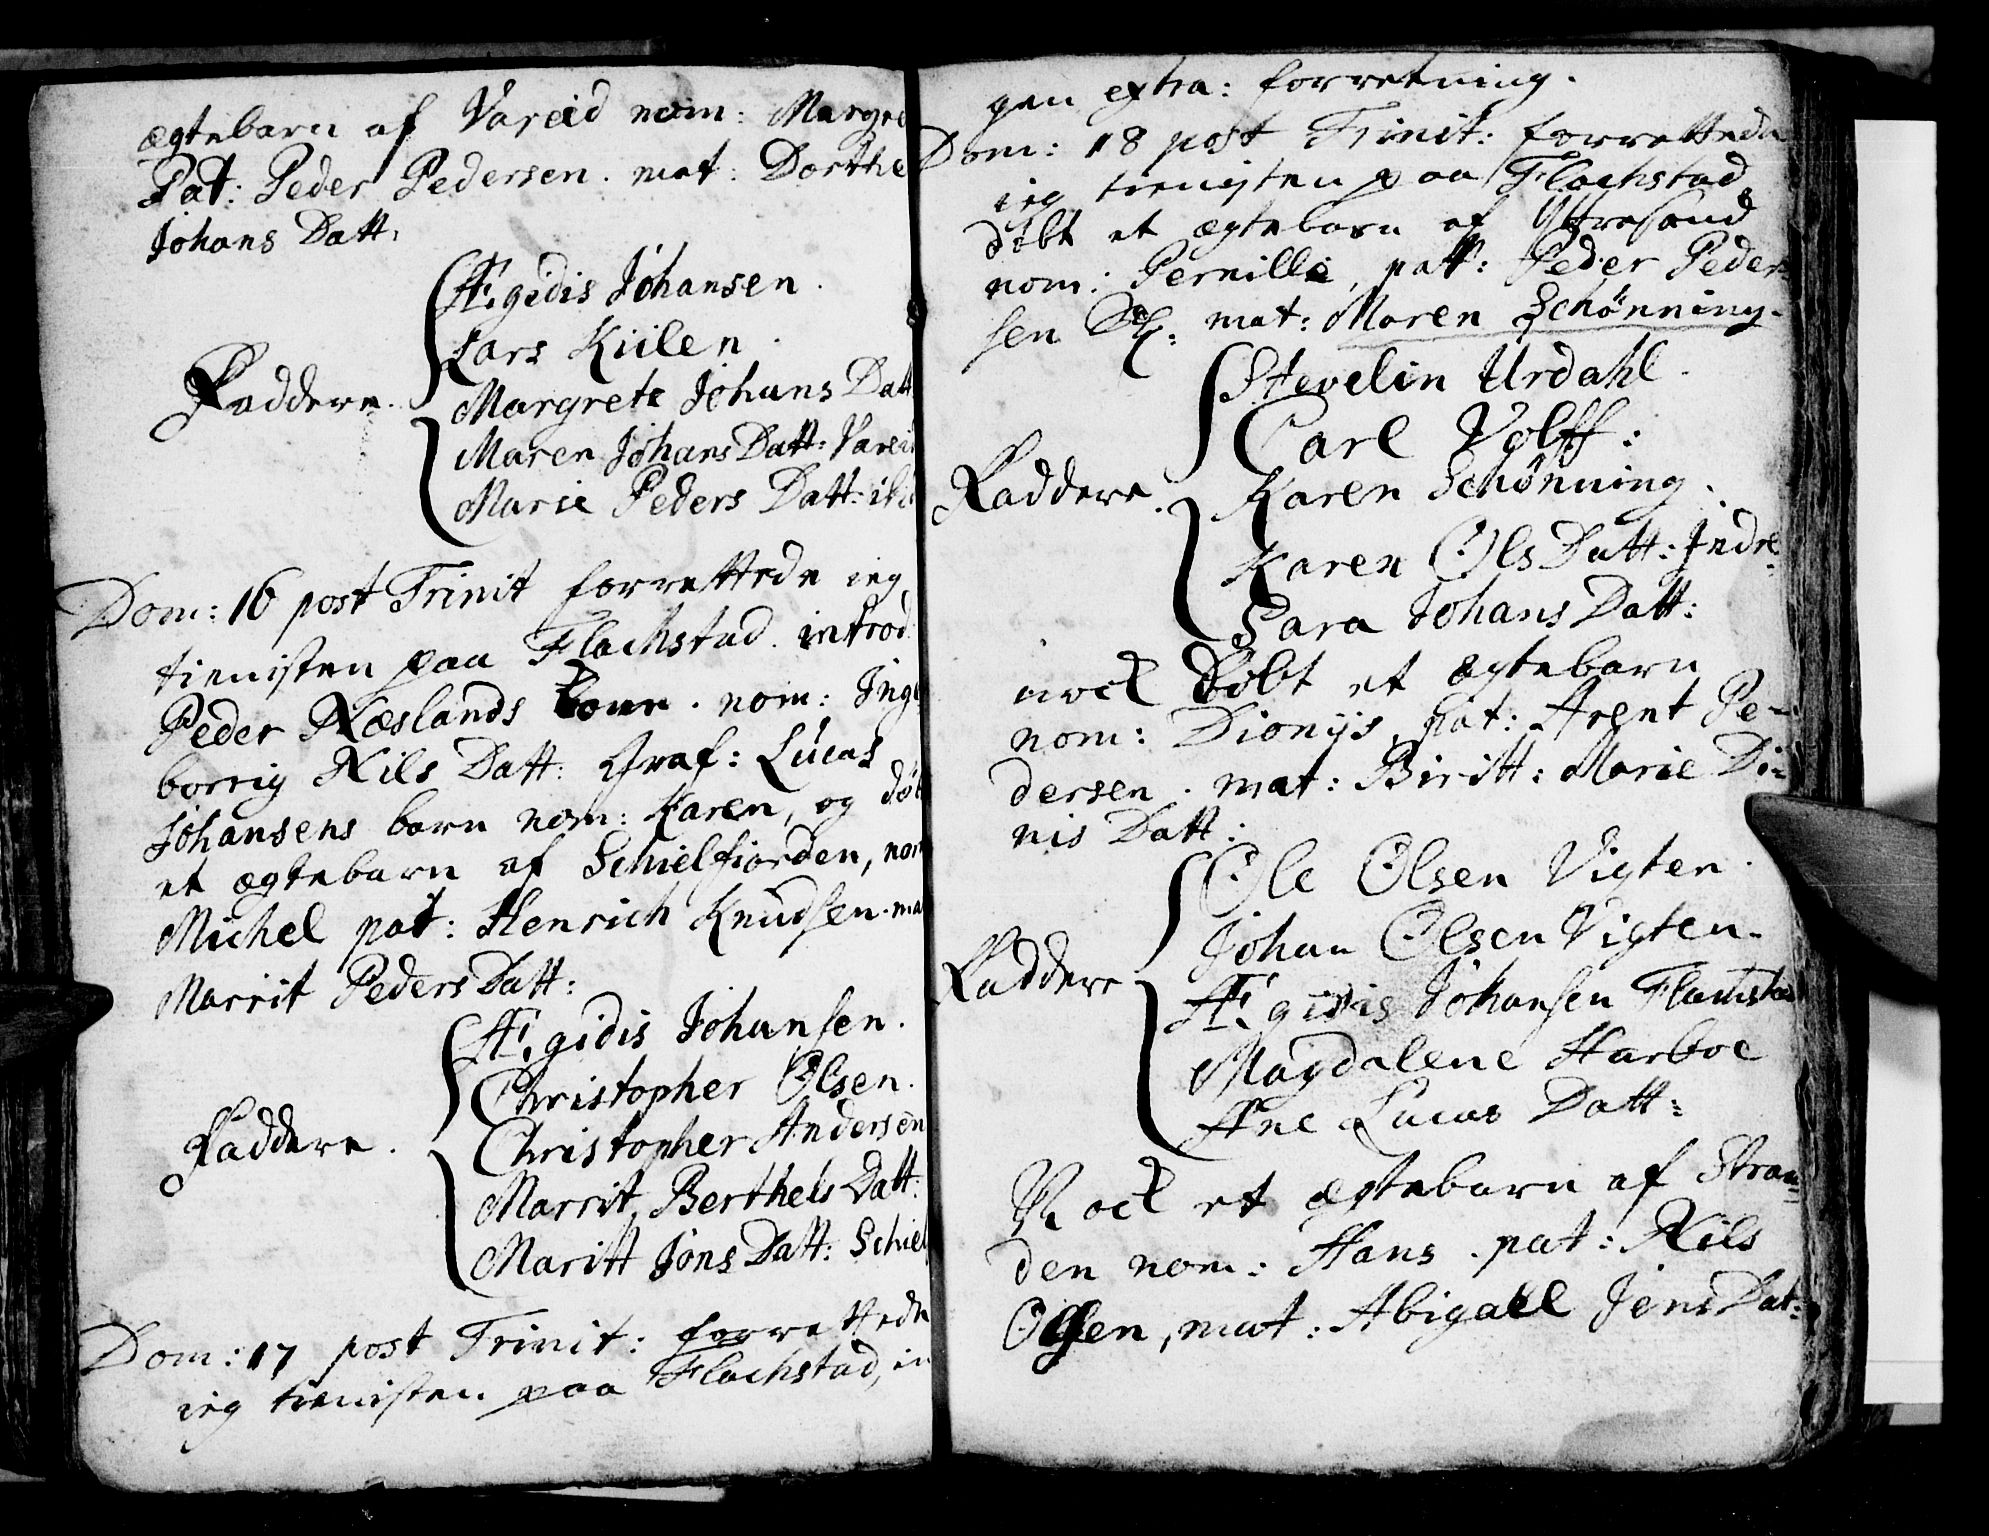 ægtebarn af Vareid nom: Margre
Pat: Peder Pedersen. mat: Dorthe
Johans Datt:
Ægidis Johansen.
Lars Kiilen.
Faddere.
Margrete Johans Datt
Maren Johans Datt: Vareid
Marie Peders Datt:
Dom: 16 post Trinit forrettede ieg
tienisten paa Flachstad. introd:
Peder Næslands kone. nom: Inge
borrig Nils Datt: Graf: Lucas
Johansens barn nom: Karen, og døbt
et ægtebarn af Schielfiorden, nom
Michel pat: Henrich Knudsen. mat
Marrit Peders Datt:
Ægidis Johansen.
Christopher Olsen.
Faddere.
Christopher Andersen
Marrit Berthels Datt:
Maritt Jons Datt: Schiel
Dom: 17 post Trinit: forrettede
ieg tienisten paa Flachstad, in
gen extra: forretning.
Dom: 18 post Trinit: forrettede
ieg tienisten paa Flachstad
døbt et ægtebarn af Yttresand
nom: Pernille, patt: Peder Peder
sen mat: Maren Schønning.
Stevelin Urdahl.
Carl Volff:
Faddere.
Karen Schønning.
Karen Ols Datt: Indre
Sara Johans Datt:
nock døbt et ægtebarn
nom: Dionijs, pat: Arent Pe-
dersen. mat: Biritt: Marie Di-
nis Datt:
Ole Olsen Vigten.
Johan Olsen Vigten.
Faddere
Ægidis Johansen Flachstad
Magdalene Harboe
Ane Lucas Datt:
Nock et ægtebarn af Stran-
den nom: Hans. pat: Nils
Olsen, mat: Abigael Jens Dat: